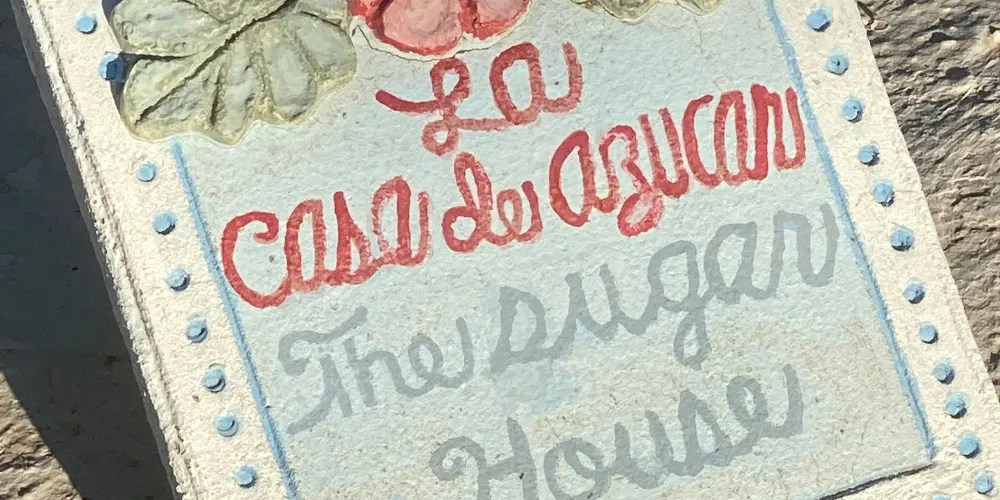 La
casa de azucar
The sugar
House